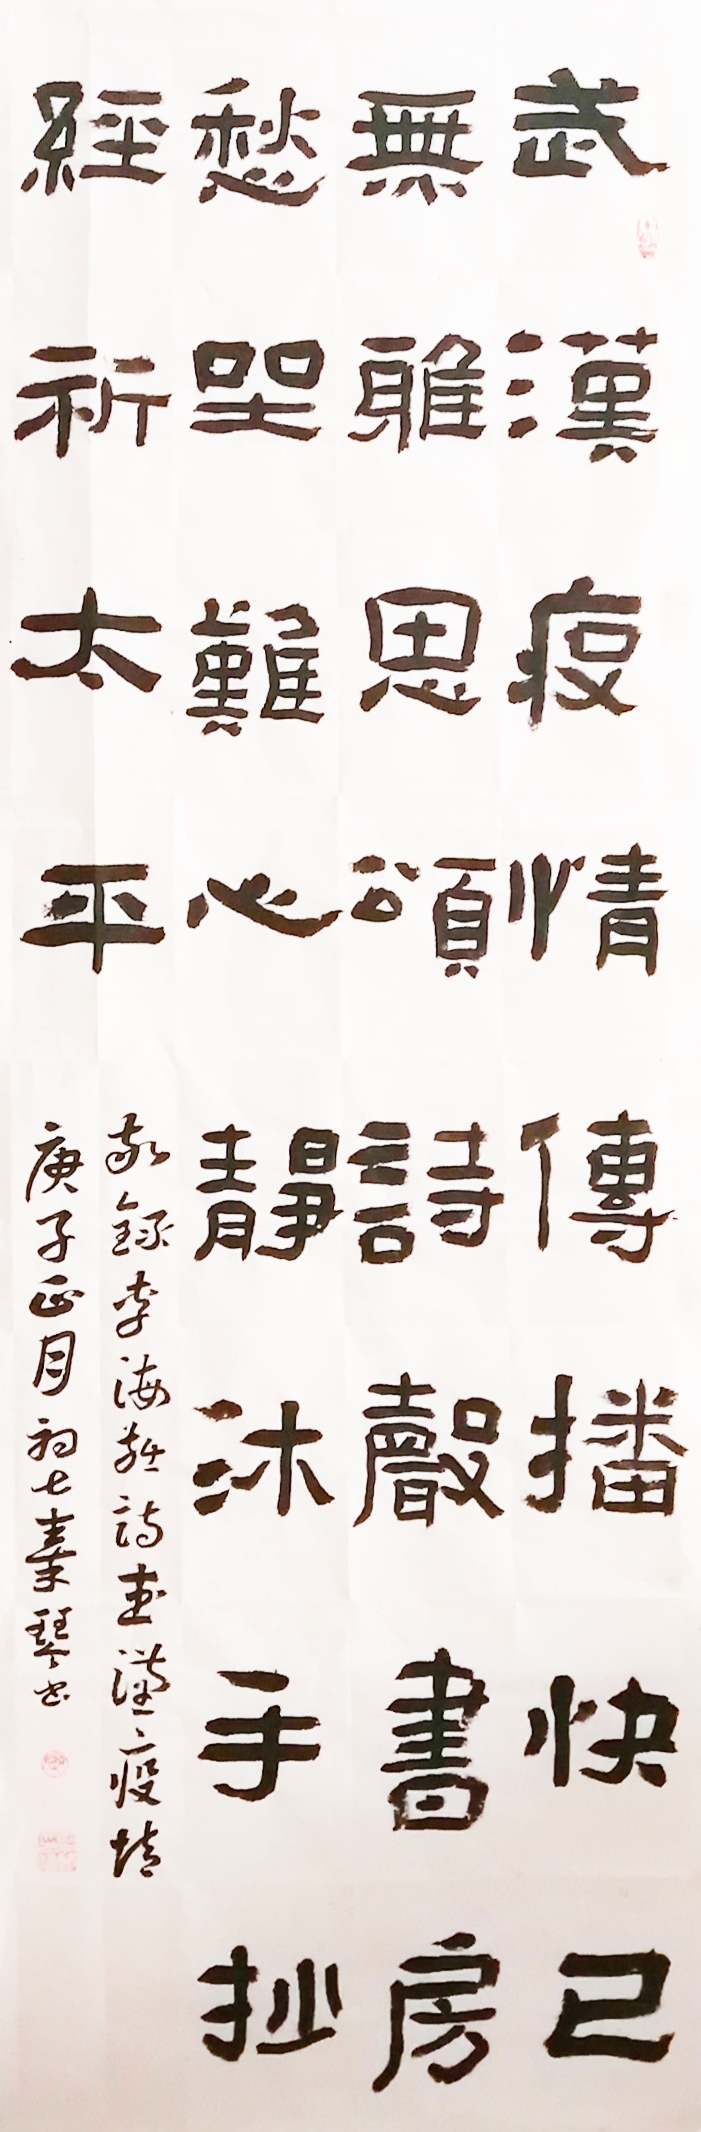 武漢疫情傳播快已
無雅思頌詩聲書房
愁坐難心靜沐手抄
經祈太平
敬録李海詩武漢之疫情
庚子正月初七秦琴書